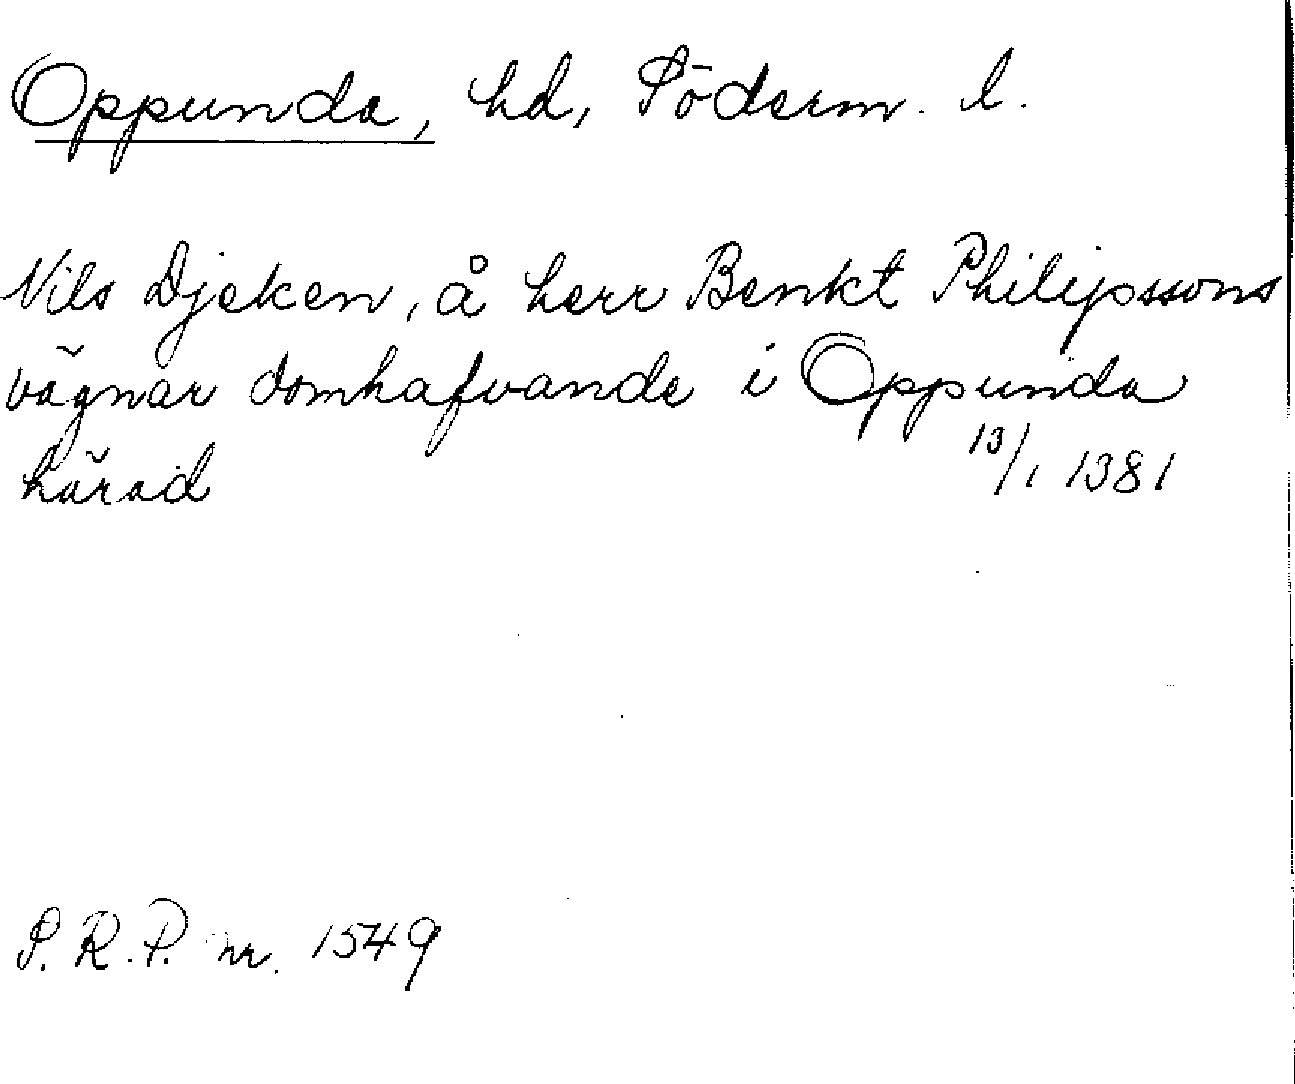 Oppunda, hd, Söderm. l.
Nils Djeken, å herr Benkt Philipssons
vägnar domhafvande i Oppunda
härad 13/1 1381
S. R. P. nr. 1549